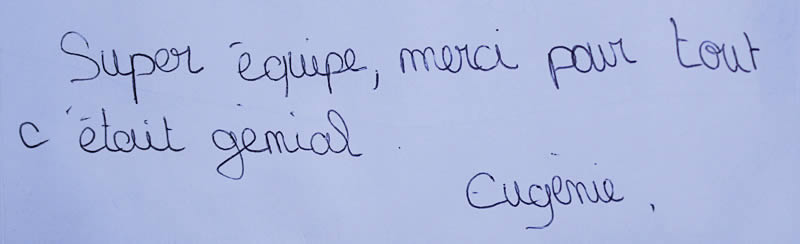 Super équipe, merci pour tout
c'était génial.
Eugénie,